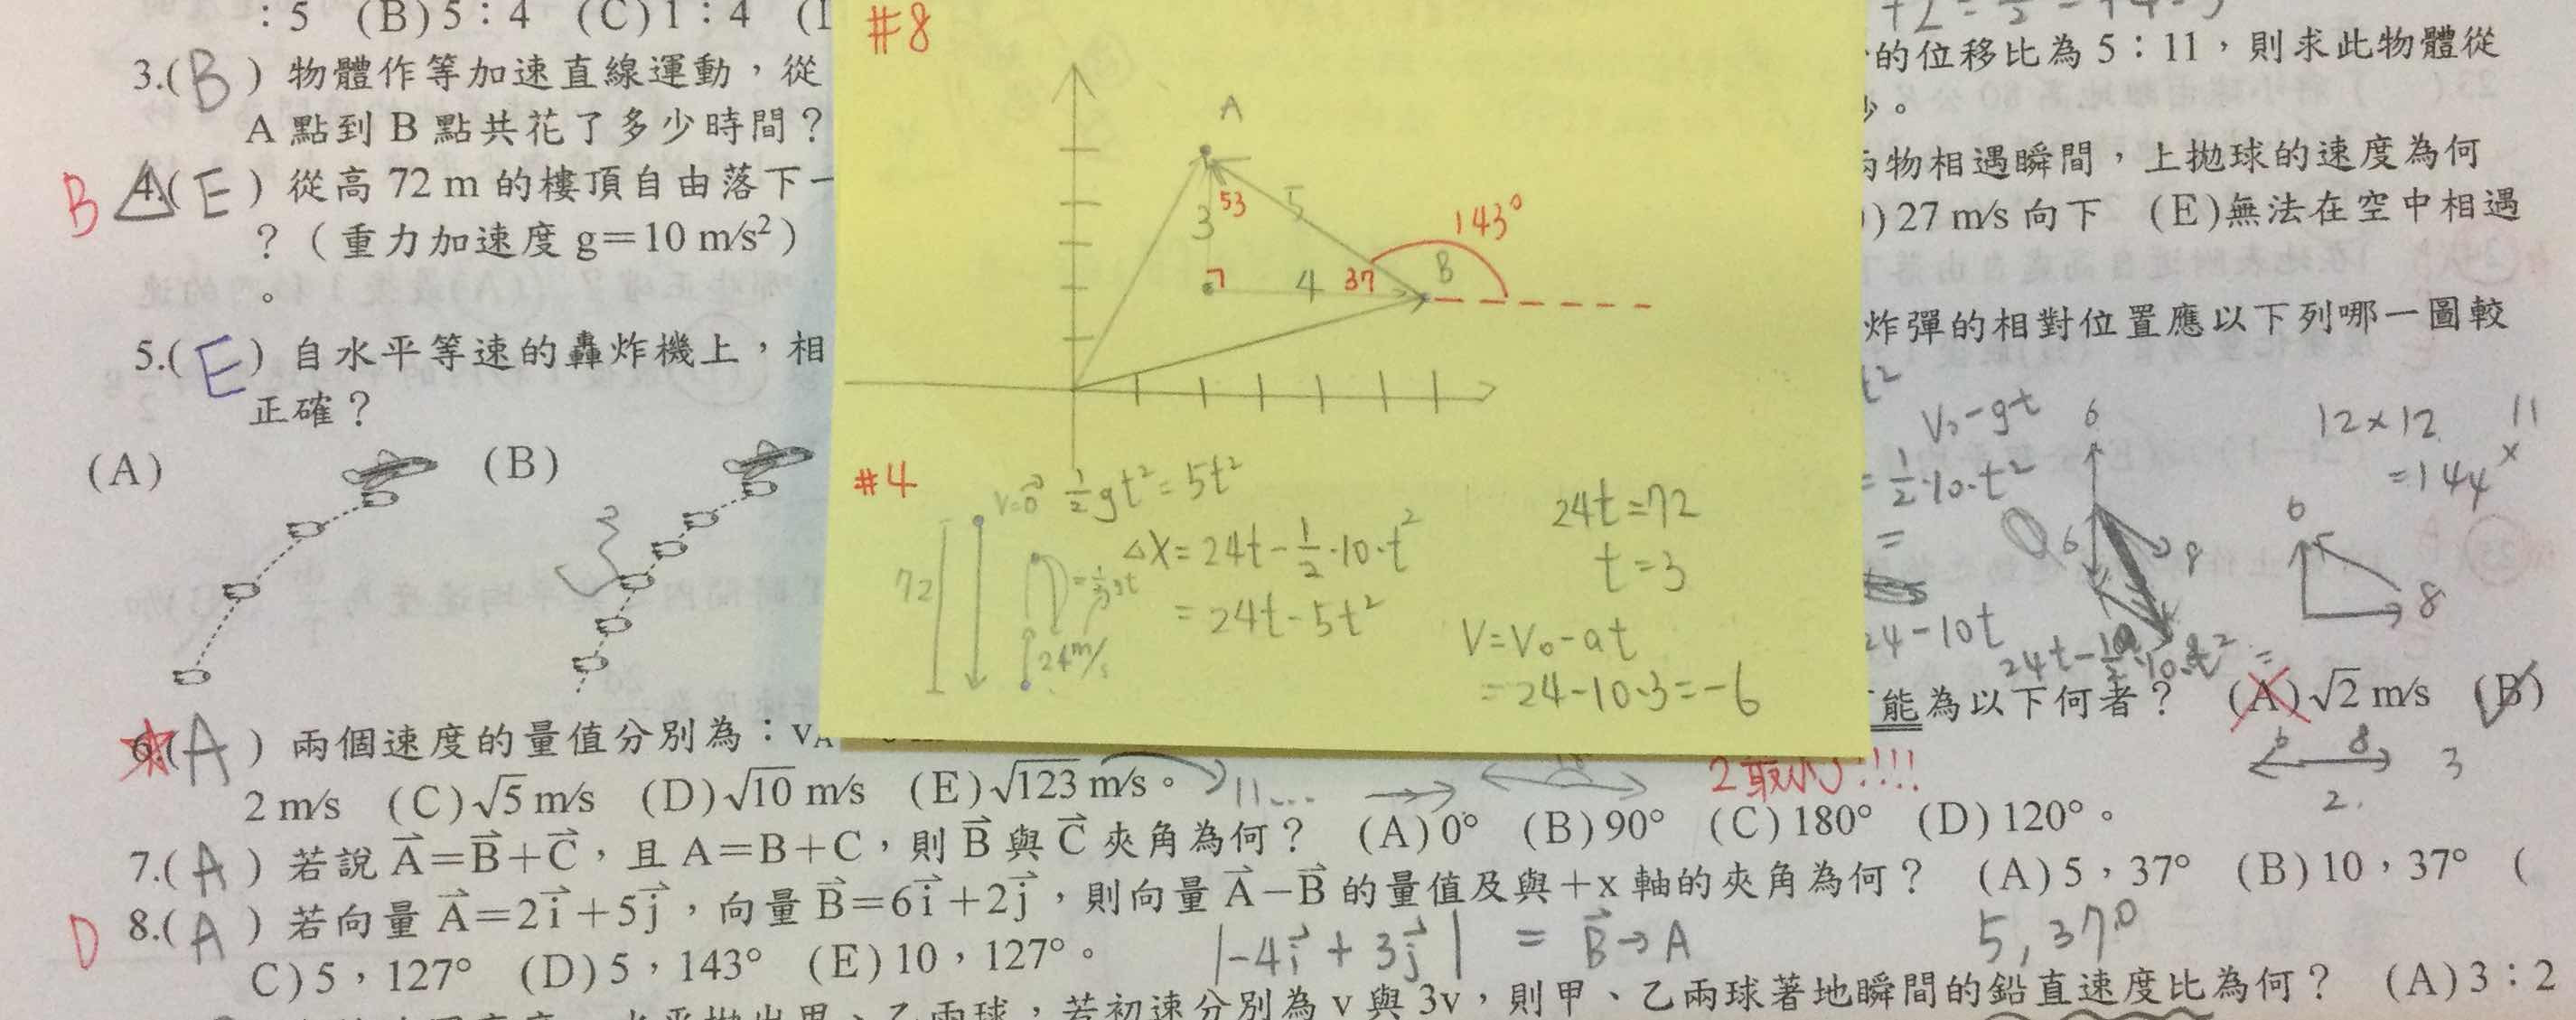 ：5 (B)5：4 (C)1：4
3.(B) 物體作等加速直線運動，從
的位移比為 5：11，則求此物體從
A 點到 B 點共花了多少時間？
秒。
B 4.(E) 從高 72 m 的樓頂自由落下一
兩物相遇瞬間，上拋球的速度為何
？（重力加速度 g＝10 m/s²）
27 m/s 向下 (E)無法在空中相遇
。
5.(E) 自水平等速的轟炸機上，相
炸彈的相對位置應以下列哪一圖較
正確？
(A) (B)
#8
A
3 53 5 143°
7 4 37 B
#4
V=0 ½gt²=5t²
72
△X=24t-½·10·t²
=24t-5t²
24m/s
24t=72
t=3
V=V₀-at
=24-10·3=-6
t²
V₀-gt
=½·10·t²
=
24-10t
6
6 8
12×12
=144
11
×
6
8
6.(A) 兩個速度的量值分別為：vA
能為以下何者？ (A)√2 m/s (B)
2 m/s (C)√5 m/s (D)√10 m/s (E)√123 m/s。
11...
2最小!!!!
6 8 3
2.
7.(A) 若說 A⃗＝B⃗＋C⃗，且 A＝B＋C，則 B⃗ 與 C⃗ 夾角為何？ (A)0° (B)90° (C)180° (D)120°。
D 8.(A) 若向量 A⃗＝2i⃗＋5j⃗，向量 B⃗＝6i⃗＋2j⃗，則向量 A⃗－B⃗ 的量值及與＋x 軸的夾角為何？ (A)5，37° (B)10，37° (
C)5，127° (D)5，143° (E)10，127°。
|-4i⃗+3j⃗| = B⃗→A
5,37°
若初速分別為 v 與 3v，則甲、乙兩球著地瞬間的鉛直速度比為何？ (A)3：2